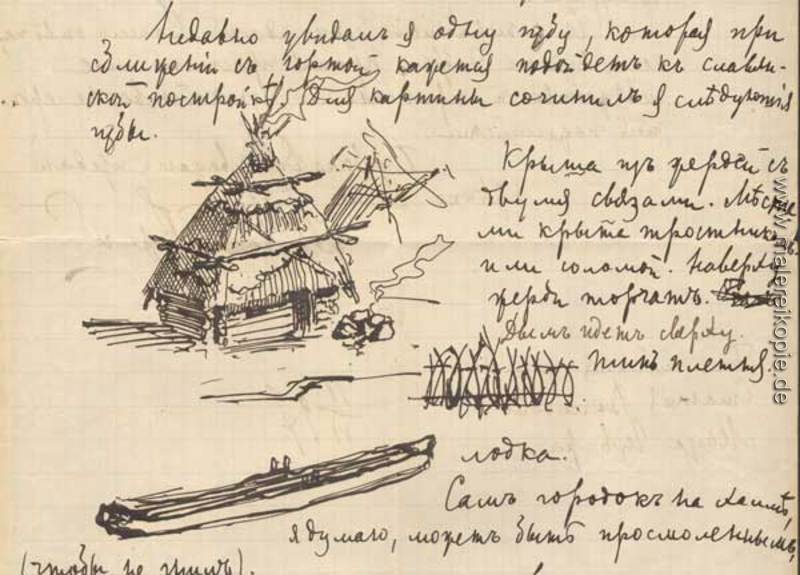 Недавно увидалъ я одну избу, которая при
сближеніи съ юртой кажется подойдетъ къ славян-
ской постройкѣ. Для картины сочинилъ я слѣдующія
избы.
Крыша изъ жердей съ
двумя связами. Мѣста-
ми крыта тростникомъ
или соломой. Наверху
жерди торчатъ.
Дымъ идетъ сверху.
Тынъ плетня.
лодка.
Самъ городокъ на холмѣ,
я думаю, можетъ быть просмоленнымъ,
(чтобы не гнилъ).
www.malereikopie.de